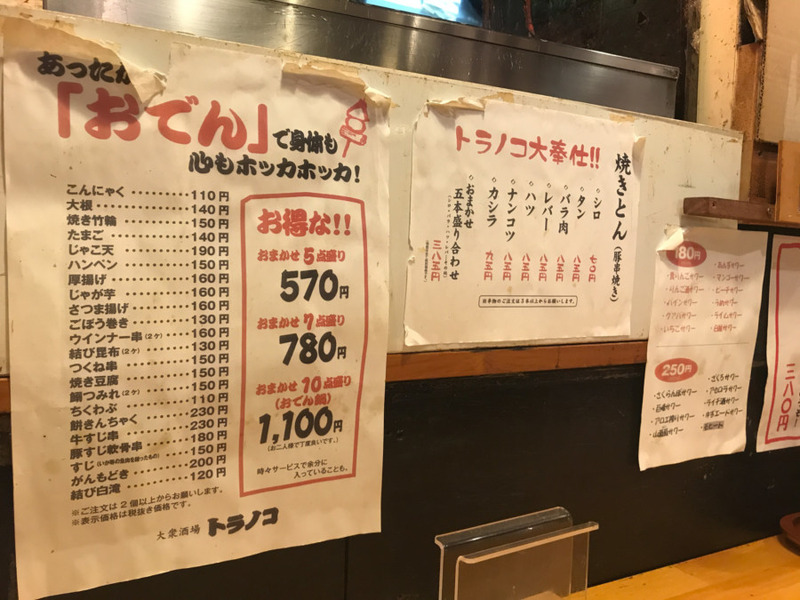 あったか
「おでん」で身体も
心もホッカホッカ!
こんにゃく ········· 110円
大根 ··············· 140円
焼き竹輪 ··········· 150円
たまご ············· 140円
じゃこ天 ··········· 190円
ハンペン ··········· 150円
厚揚げ ············· 160円
じゃが芋 ··········· 160円
さつま揚げ ········· 160円
ごぼう巻き ········· 130円
ウインナー串(2ケ) ··· 160円
結び昆布(2ケ) ······· 130円
つくね串 ··········· 150円
焼き豆腐 ··········· 150円
鰯つみれ(2ケ) ······· 150円
ちくわぶ ··········· 110円
餅きんちゃく ······· 230円
牛すじ串 ··········· 230円
豚すじ軟骨串 ······· 180円
すじ ··············· 150円
がんもどき ········· 200円
結び白滝 ··········· 120円
※ご注文は2個以上からお願いします。
※表示価格は税抜き価格です。
大衆酒場 トラノコ
お得な!!
おまかせ5点盛り
570円
おまかせ7点盛り
780円
おまかせ10点盛り
(おでん鍋)
1,100円
(お二人様で丁度良いです。)
時々サービスで余分に
入っていることも、
トラノコ大奉仕!!
焼きとん(豚串焼き)
◇シロ 七〇円
◇タン 八五円
◇バラ肉 八五円
◇レバー 八五円
◇ハツ 八五円
◇ナンコツ 八五円
◇カシラ 九五円
◇おまかせ
五本盛り合わせ
三八五円
180円
250円
・さくらんぼサワー
・ざくろサワー
・アセロラサワー
・ライチ酒サワー
三八〇円